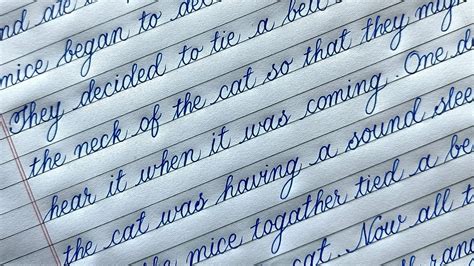 nd ate
mice began to de
They decided to tie a bell
the neck of the cat so that they migh
hear it when it was coming. One d
the cat was having a sound slee
mice togather tied a be
cat. Now all t
rang